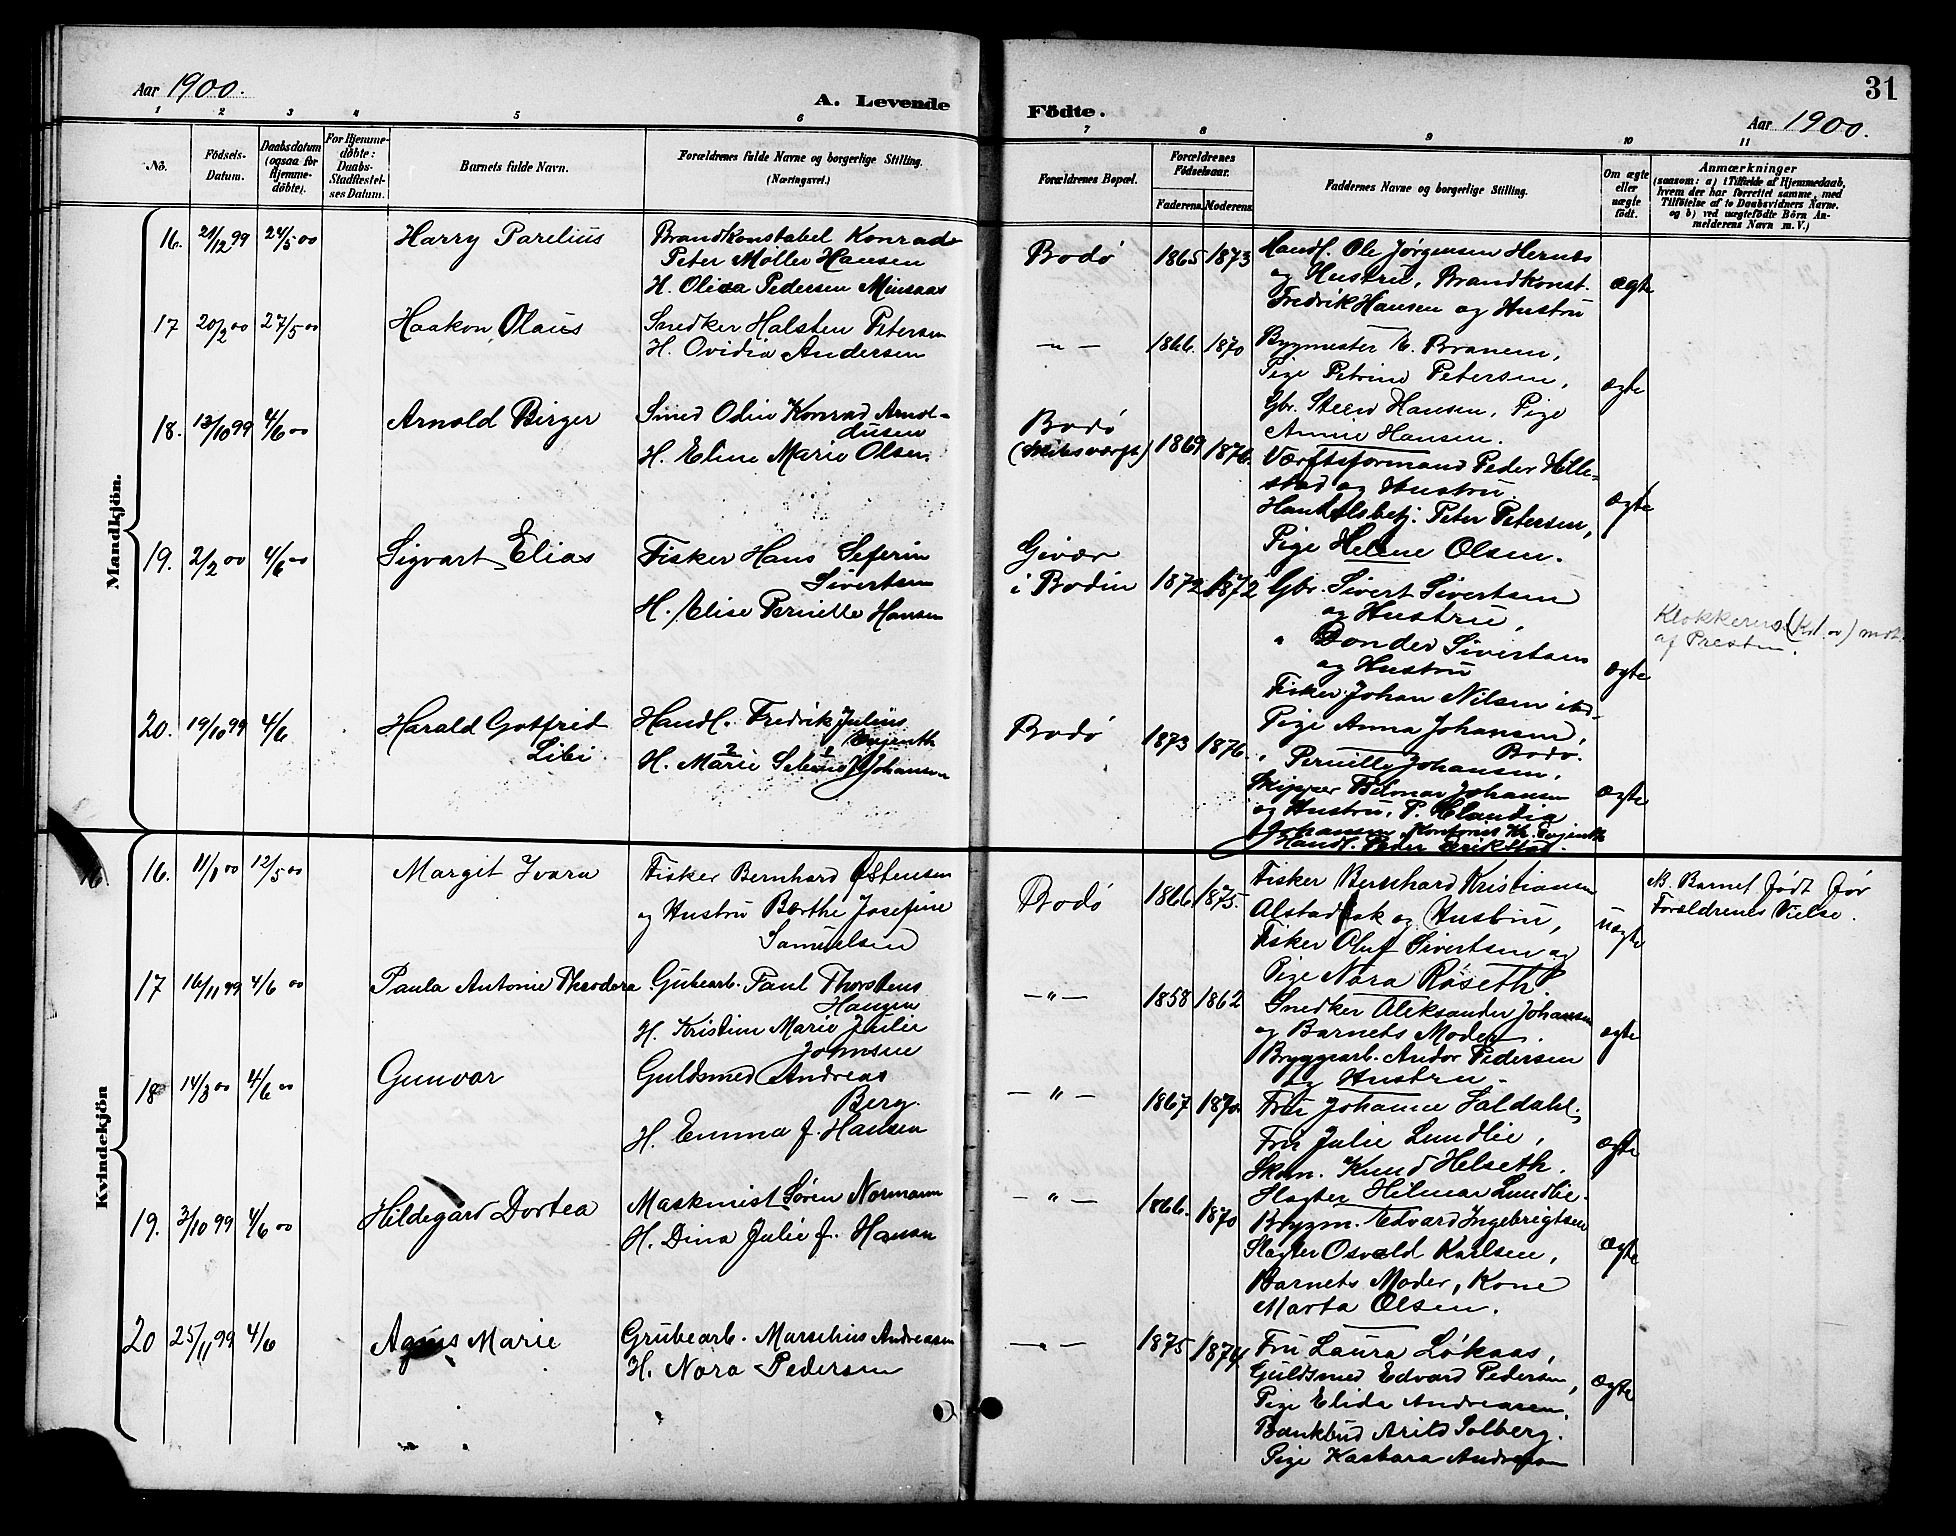 Aar 1900.
A. Levende
Födte.
31
Aar 1900.
1 2 3 4 5 6 7 8 9 10 11
No.
Födsels-Datum.
Daabsdatum (ogsaa for Hjemmedöbte).
For Hjemmedöbte: Daabs-Stadfæstelses Datum.
Barnets fulde Navn.
Forældrenes fulde Navne og borgerlige Stilling. (Næringsvei.)
Forældrenes Bopæl.
Forældrenes Födselsaar.
Faderens. Moderens.
Faddernes Navne og borgerlige Stilling.
Om ægte eller uægte födt.
Anmærkninger
(saasom: a) i Tilfælde af Hjemmedaab, hvem der har forrettet samme, med Tilföielse af to Daabsvidners Navne, og b) ved uægtefödte Börn Anmelderens Navn m. V.)
Mandkjön.
16. 21/12 99 24/5 00 Harry Parelius
Brandkonstabel Konrad
Peter Möller Hansen
H. Pedersen Minsaas
Bodø 1865 1873
Handl. Ole Jørgensen Hernes
og Hustru, Brandkonst.
Fredrik Hansen og Hustru
ægte
17 20/2 00 27/5 00 Haakon Olaus
Snedker Halsten Petersen
H. Ovidia Andersen
— " — 1866. 1870
Bygmester
Pige Petrine Petersen,
Gbr. Steen Hansen, Pige
Annie Hansen.
ægte
18. 13/10 99 4/6 00 Arnold Birger
Smed Odin Konrad Arnol-
dusen
H. Eline Marie Olsen.
Bodø
1869 1876.
Værftsformand Peder Hille-
stad og Hustru.
Handelsbetj. Peter Petersen,
Pige Helene Olsen.
ægte
19. 2/2 00 4/6 00 Sigvart Elias
Fisker Hans Seferin
Sivertsen
H. Elise Pernille Hansen
Givær
i Bodin 1872 1872
Gbr. Sivert Sivertsen
og Hustru,
" Donder Sivertsen
og Hustru
Fisker Johan Nilsen
ægte
Klokkerens
af Presten.
20. 19/10 99 4/6 Harald Gotfrid
Libi.
Handl. Fredrik Julius
Evjenth
H. Marie Selma J Johansen
Bodø 1873 1876.
Pige Anna Johansen,
Bodø.
" Pernille Johansen,
Skipper Hilmar Johansen
og Hustru, P. Claudia
Johansen, Kontorist Kr. Evjenth
Handl. Peder Erikstad.
ægte
Kvindekjön
16. 11/1 00 12/5 00 Margit Ivara
Fisker Bernhard Østensen
og Hustru Berthe Josefine
Samuelsen
Bodø 1866. 1875.
Fisker Bernhard Kristiansen
Alstadhak og Hustru,
Fisker Oluf Sivertsen og
Pige Nora Røseth
uægte
NB. Barnet født før
Forældrenes Vielse.
17 16/11 99 4/6 00 Paula Antonie Theodora
Grubearb. Paul Thorstens
Haugen
H. Kristine Marie Julie
Johnsen
— " — 1858 1862
Snedker Aleksander Johansen
og Barnets Moder.
Bryggearb. Andor Pedersen
og Hustru.
ægte
18 14/3 00 4/6 00 Gunvor
Guldsmed Andreas
Berg.
H. Emma f. Hansen
— " — 1867 1870.
Fru Johanne Saldahl,
Fru Julie Lundlie,
Skom. Knud Helseth.
Slagter Hilmar Lundlie.
ægte
19. 3/10 99 4/6 00 Hildegard Dortea
Maskinist Søren Normann
H. Dina Julie f. Hansen
— " — 1866. 1870
Bygm. Edvard Ingebrigtsen
Slagter Osvald Karlsen,
Barnets Moder, Kone
Marta Olsen.
ægte
20 25/11 99 4/6 Agnes Marie
Grubearb. Marselius Andreassen
H. Nora Pedersen
— " — 1875 1874
Fru Laura Løkaas,
Guldsmed Edvard Pedersen,
Pige Elida Andreasen,
Bankbud Arild Solberg.
Pige Kasbara Andreasen
ægte